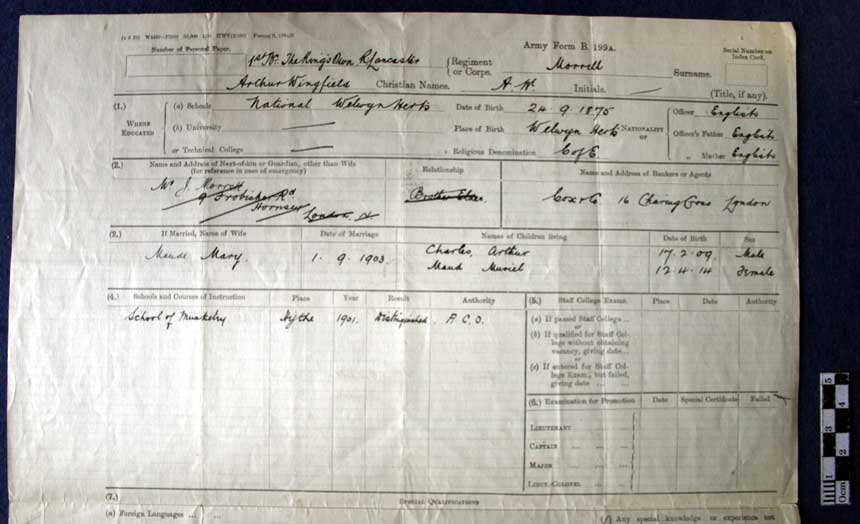 Army Form B. 199A.
Number of Personal Paper.
Serial Number on Index Card.
1st Bn. The King's Own R Lancaster Regiment or Corps. Morrell Surname.
Arthur Wingfield Christian Names. A. W. Initials. (Title, if any).
(1.) Where Educated
(a) Schools National Welwyn Herts Date of Birth 24. 9. 1875 Nationality of Officer English
(b) University Place of Birth Welwyn Herts Officer's Father English
or Technical College Religious Denomination C of E. „ Mother English
(2.) Name and Address of Next-of-kin or Guardian, other than Wife (for reference in case of emergency) Relationship Name and Address of Bankers or Agents
Mr J. Morrell
9 Frobisher Rd Brother Cox & Co 16 Charing Cross London
Hornsey
London
(3.) If Married, Name of Wife Date of Marriage Names of Children living Date of Birth Sex
Maude Mary 1. 9. 1903 Charles, Arthur 17. 2. 09. Male
Maud Muriel 12. 4. 14 Female
(4.) Schools and Courses of Instruction Place Year Result Authority (5.) Staff College Exams. Place Date Authority
School of Musketry Hythe 1901. Distinguished A. C. O.
(a) If passed Staff College ...
or
(b) If qualified for Staff College without obtaining vacancy, giving date ...
or
(c) If entered for Staff College Exam., but failed, giving date ... ...
(6.) Examination for Promotion Date Special Certificate Failed
Lieutenant
Captain ... ... ...
Major ... ... ...
Lieut.-Colonel ... ...
(7.) Special Qualifications
(a) Foreign Languages ... ... (f) Any special knowledge or experience not
0cm 1 2 3 4 5